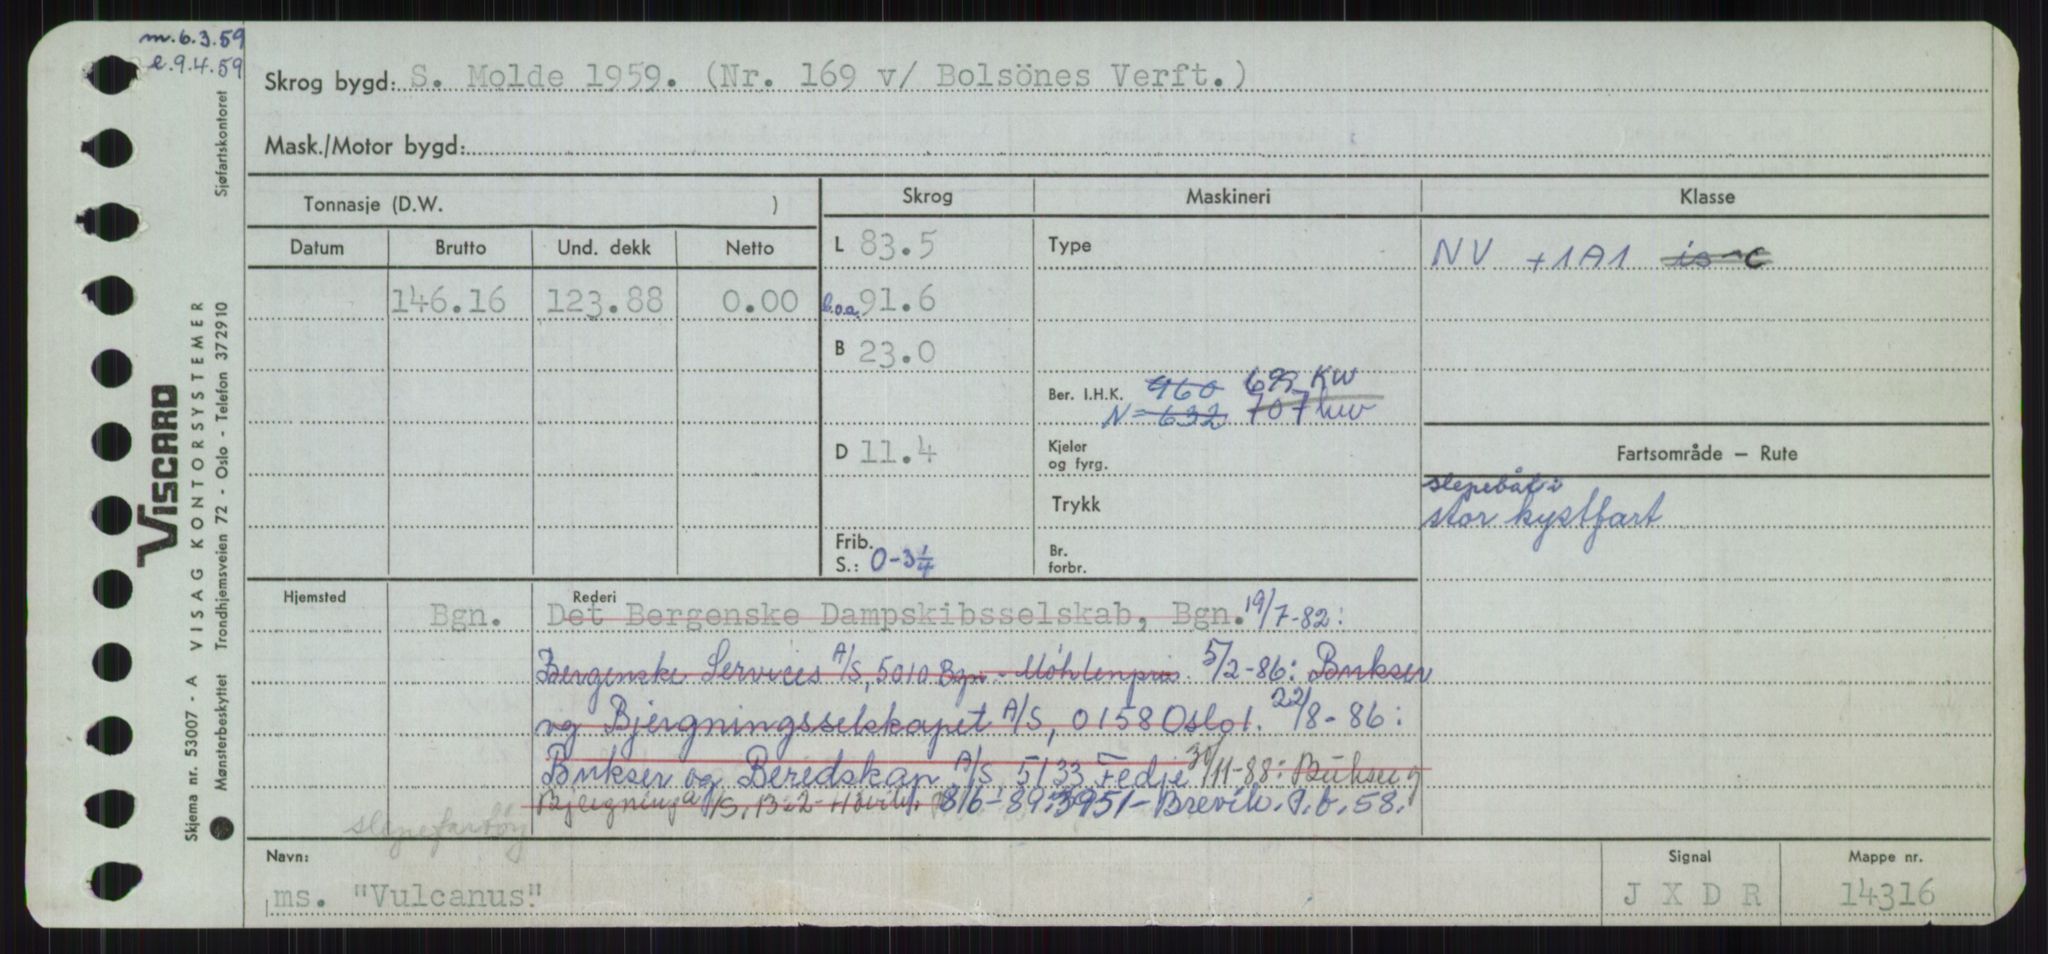 m. 6.3.59
e. 9.4.59
Skrog bygd: S. Molde 1959. (Nr. 169 v/ Bolsönes Verft.)
Mask./Motor bygd:
Tonnasje (D.W. )
Skrog
Maskineri
Klasse
Datum Brutto Und. dekk Netto
L 83.5
Type
NV +1A1 is C
146.16 123.88 0.00
l.o.a. 91.6
B 23.0
Ber. I.H.K. 960 699 KW
N = 632 707 kw
D 11.4
Kjeler
og fyrg.
Fartsområde – Rute
slepebåt i
stor kystfart
Trykk
Frib.
S.: 0-3¼
Br.
forbr.
Hjemsted
Rederi
Bgn. Det Bergenske Dampskibsselskab, Bgn. 19/7-82:
Bergenske Services A/S, 5010 Bgn - Møhlenpris. 5/2-86: Bukser
og Bjergningsselskapet A/S, 0158 Oslo 1. 22/8-86:
Bukser og Beredskap A/S 5133 Fedje 30/11-88: Bukser og
Bjergning A/S, 1322-Høvik. 8/6-89: 3951-Brevik. P.b. 58.
slepefartøy
Navn:
ms. "Vulcanus".
Signal
J X D R
Mappe nr.
14316
VISCARD
VISAG KONTORSYSTEMER
Skjema nr. 53007 - A
Mønsterbeskyttet Trondhjemsveien 72 - Oslo - Telefon 372910
Sjøfartskontoret